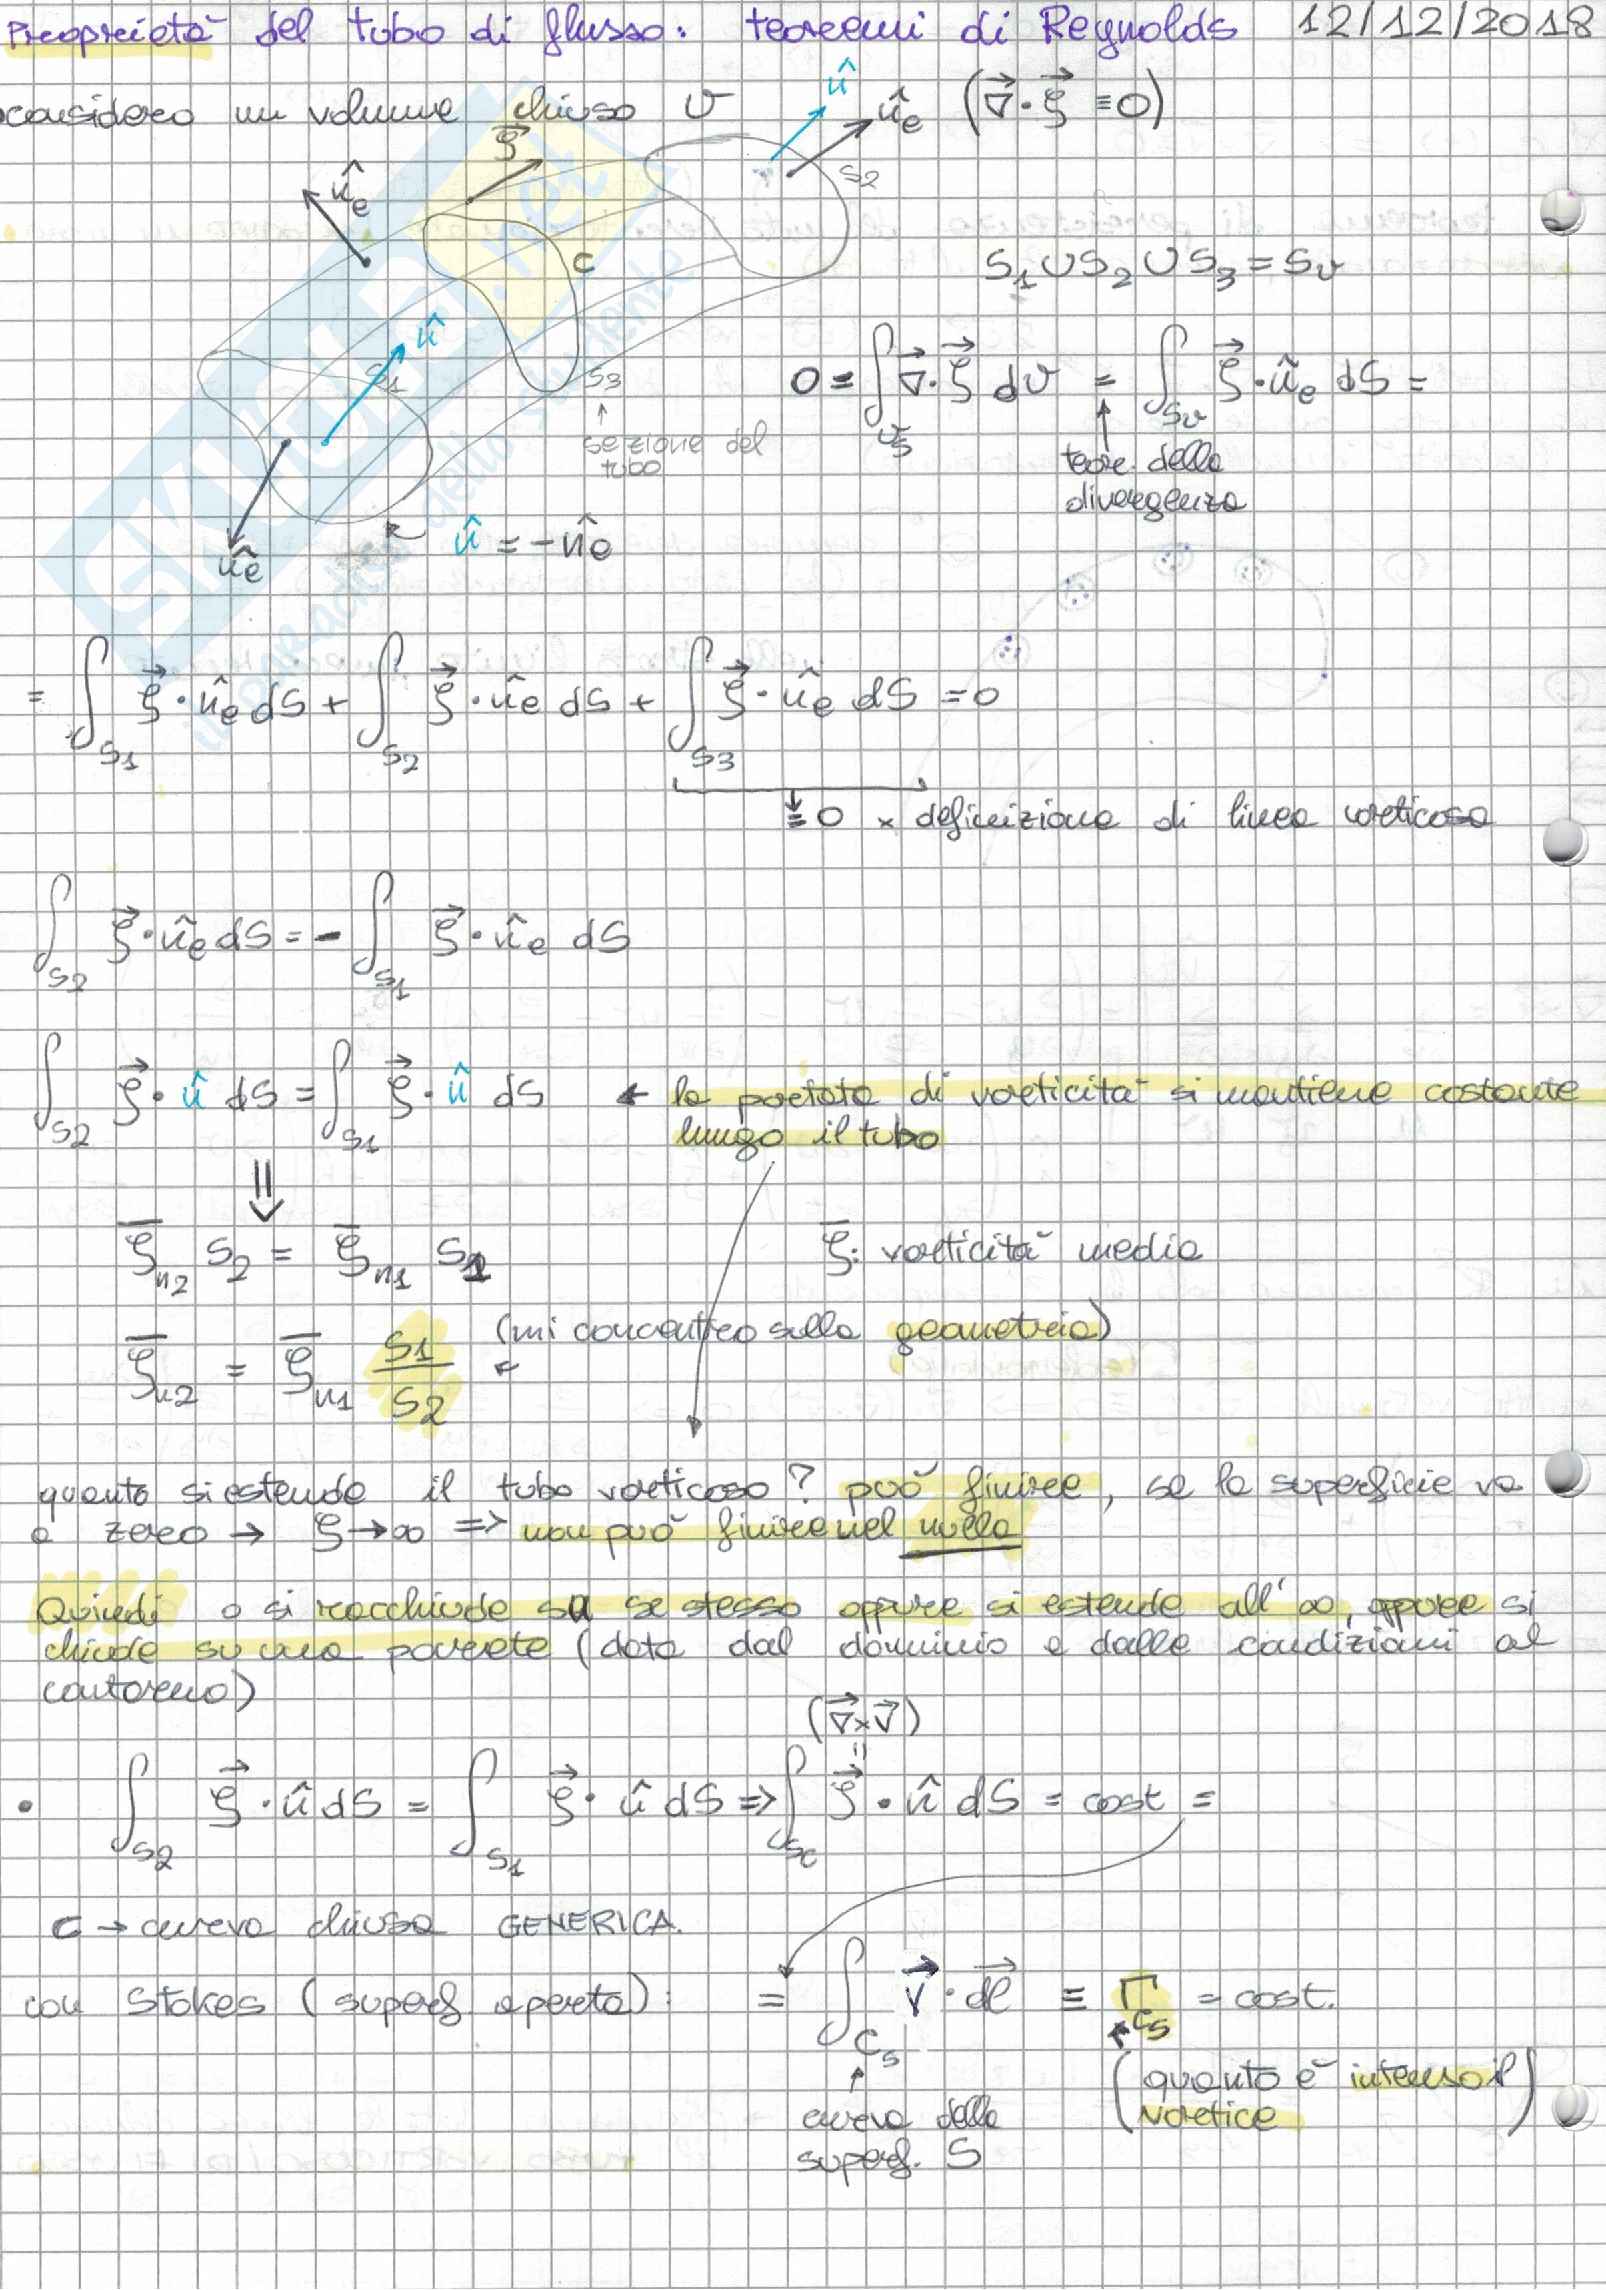 Proprietà del tubo di flusso: teoremi di Reynolds 12/12/2018
considero un volume chiuso V (∇⃗·ξ⃗ ≡ 0)
n̂
n̂e
ξ⃗
n̂e
S2
C
S1 ∪ S2 ∪ S3 = Sv
n̂
S1
S3
↑
sezione del
tubo
0 = ∫ ∇⃗·ξ⃗ dV = ∫Sv ξ⃗·n̂e dS =
teor. della
divergenza
n̂e
n̂ = -n̂e
SKUOLA.net
il paradiso dello studente
= ∫S1 ξ⃗·n̂e dS + ∫S2 ξ⃗·n̂e dS + ∫S3 ξ⃗·n̂e dS = 0
≡ 0 x definizione di linea vorticosa
∫S2 ξ⃗·n̂e dS = - ∫S1 ξ⃗·n̂e dS
∫S2 ξ⃗·n̂ dS = ∫S1 ξ⃗·n̂ dS ← la portata di vorticità si mantiene costante
lungo il tubo
⇓
ξ̄n2 S2 = ξ̄n1 S1 ξ̄: vorticità media
ξ̄n2 = ξ̄n1 S1/S2 ← (mi concentro sulla geometria)
quanto si estende il tubo vorticoso? può finire, se la superficie va
a zero → ξ → ∞ => non può finire nel nulla
Quindi o si racchiude su se stesso oppure si estende all'∞, oppure si
chiude su una parete (data dal dominio e dalle condizioni al
contorno)
(∇⃗×V⃗)
• ∫S2 ξ⃗·n̂ dS = ∫S1 ξ⃗·n̂ dS => ∫Sc ξ⃗·n̂ dS = cost =
C → curva chiusa GENERICA.
con Stokes (superf. aperta): = ∫Cs V⃗·dl⃗ ≡ ΓCs = cost.
↑
curva della
superf. S
(quanto è intenso il
vortice)